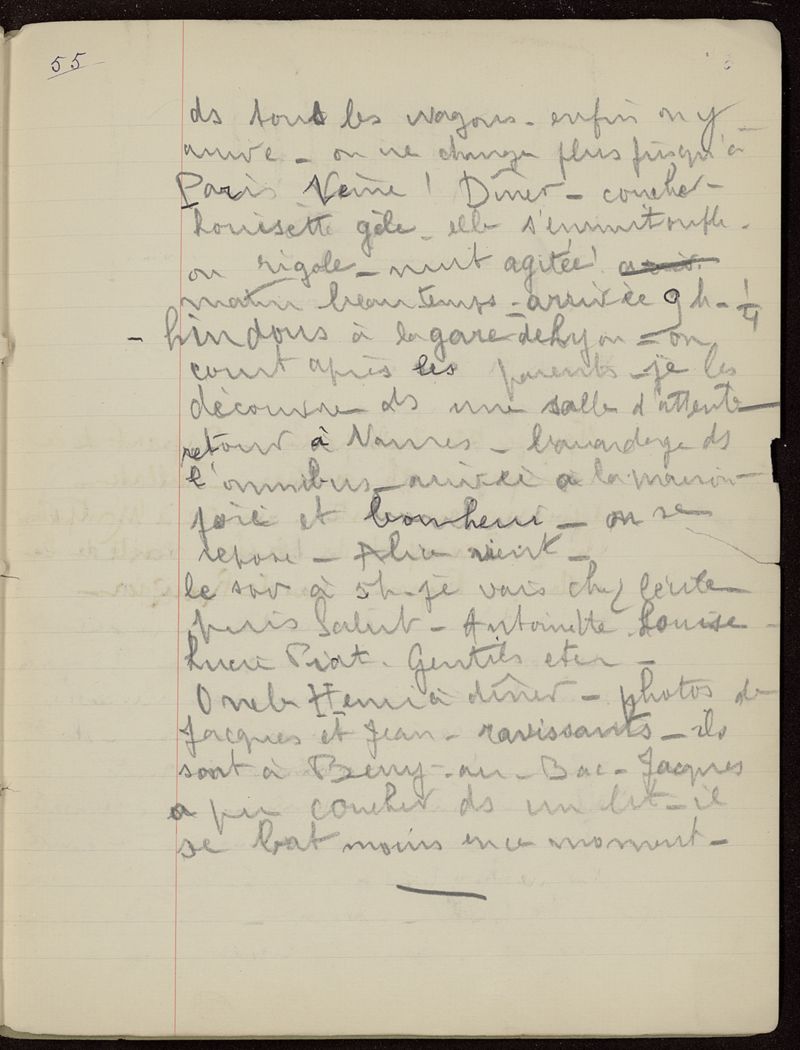 55
ds tous les wagons - enfin on y
arrive - on ne change plus jusqu'à
Paris Veine ! Dîner - coucher -
Louisette gèle - elle s'emmitoufle -
on rigole - nuit agitée !
matin beau temps - arrivée 9 h - 1/4
- hindous à la gare de Lyon = on
court après les parents - je les
découvre ds une salle d'attente
retour à Vanves - bavardage ds
l'omnibus - arrivée à la maison -
joie et bonheur - on se
repose - Alice vient -
le soir à 5h - je vais chez
puis Salut - Antoinette Louise -
Lucie Piat - Gentils etc -
Oncle Henri à dîner - photos de
Jacques et Jean - ravissants - ils
sont à Berry-au-Bac - Jacques
a pu coucher ds un lit - il
se bat moins en ce moment -